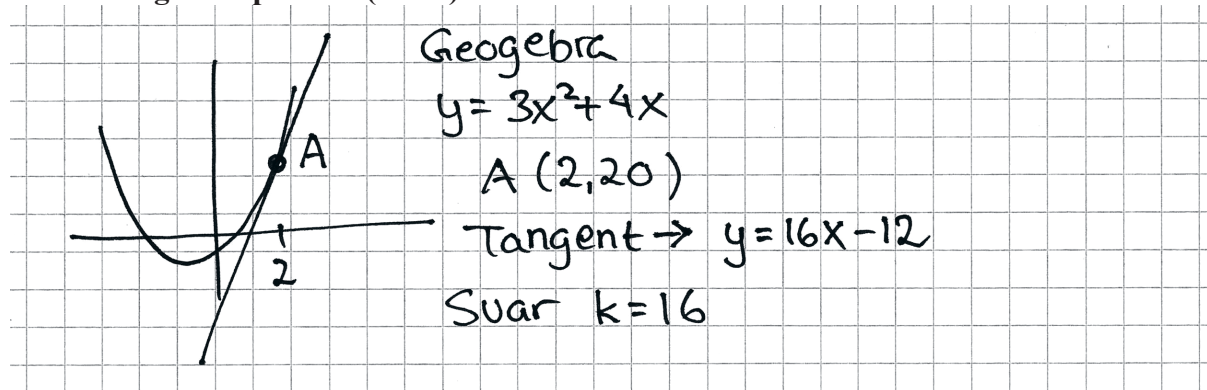 Geogebra
y = 3x²+4x
A
A (2,20)
Tangent → y = 16x-12
2
Svar k=16